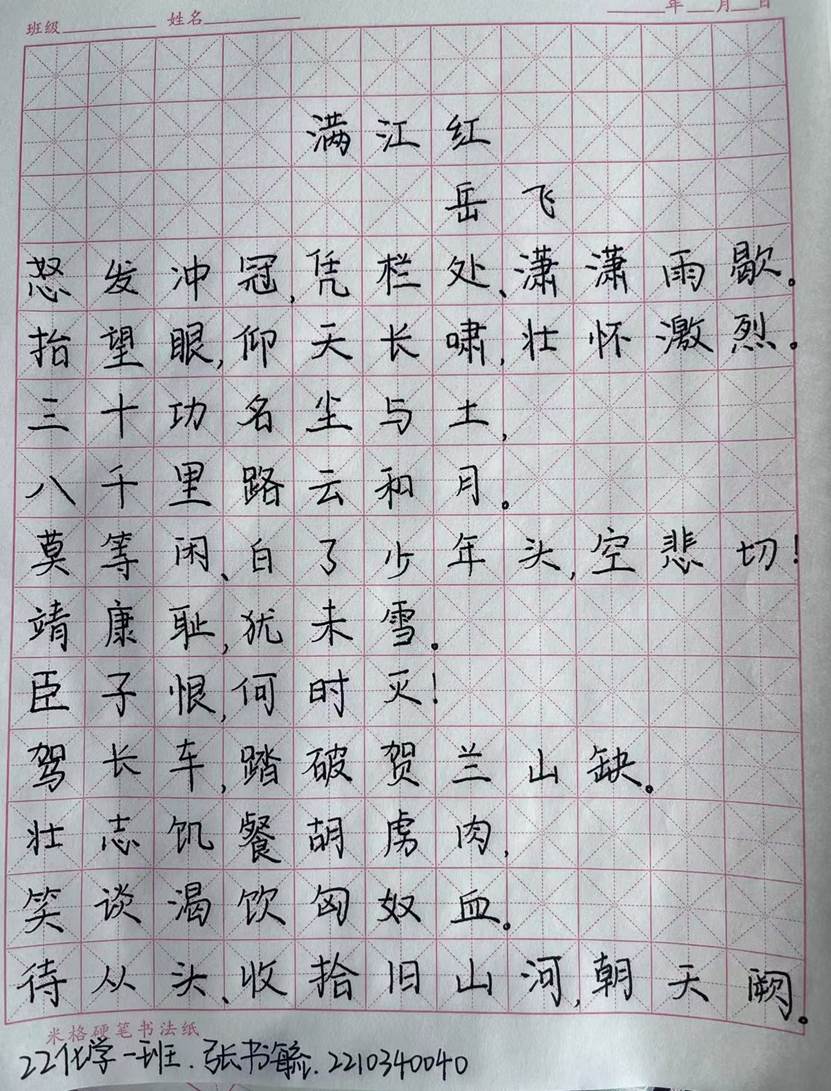 班级 姓名 年 月 日
满江红
岳飞
怒发冲冠,凭栏处、潇潇雨歇。
抬望眼,仰天长啸,壮怀激烈。
三十功名尘与土,
八千里路云和月。
莫等闲、白了少年头,空悲切!
靖康耻,犹未雪。
臣子恨,何时灭!
驾长车,踏破贺兰山缺。
壮志饥餐胡虏肉,
笑谈渴饮匈奴血。
待从头、收拾旧山河,朝天阙。
米格硬笔书法纸
22化学一班.张书毓.2210340040